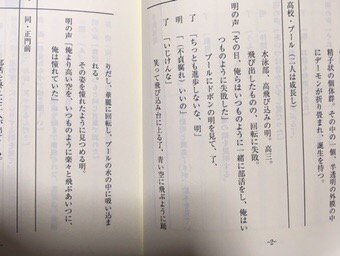 精子状の個体群。その中の一個、半透明の外膜の中
にデーモンが折り畳まれ、誕生を待つ。
高校・プール(二人は成長し)
水泳部、高飛び込みの明。高三。
飛び出したものの、回転に失敗。
明の声「その日、俺らはいつものように一緒に部活をし、俺はい
つものように失敗した」
プールにドボンの明を見て、了。
了「ちっとも進歩しないな、明」
明「(不貞腐れ)いいの」
了「いじけんなよ」
笑って飛び込み台に上る了、青い空に飛ぶように踊
-2-
りだし、華麗に回転し、プールの水の中に吸い込ま
れる。
その姿を憧れたように見つめる明。
明の声「俺より高い空を、いつものように楽々と飛ぶあいつに、
俺は憧れていた」
同・正門前